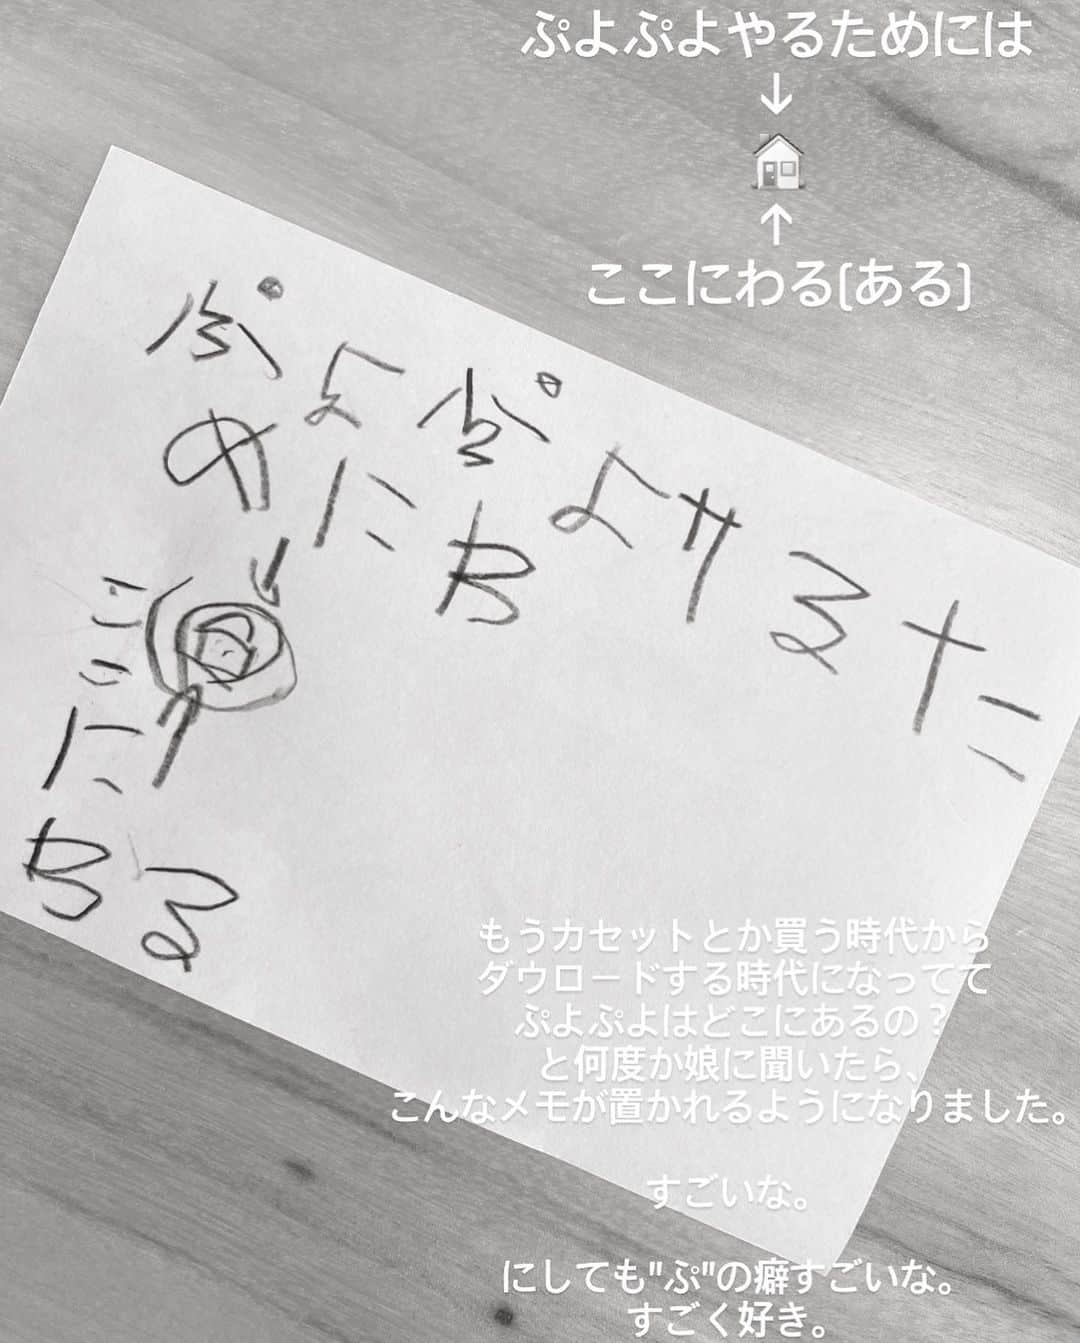 ぷよぷよやるためには
↓
🏠
↑
ここにわる(ある)
ぷよぷよやるた
めにわ
↓
ここに
↑
わる
もうカセットとか買う時代から
ダウロードする時代になってて
ぷよぷよはどこにあるの？
と何度か娘に聞いたら、
こんなメモが置かれるようになりました。
すごいな。
にしても"ぷ"の癖すごいな。
すごく好き。